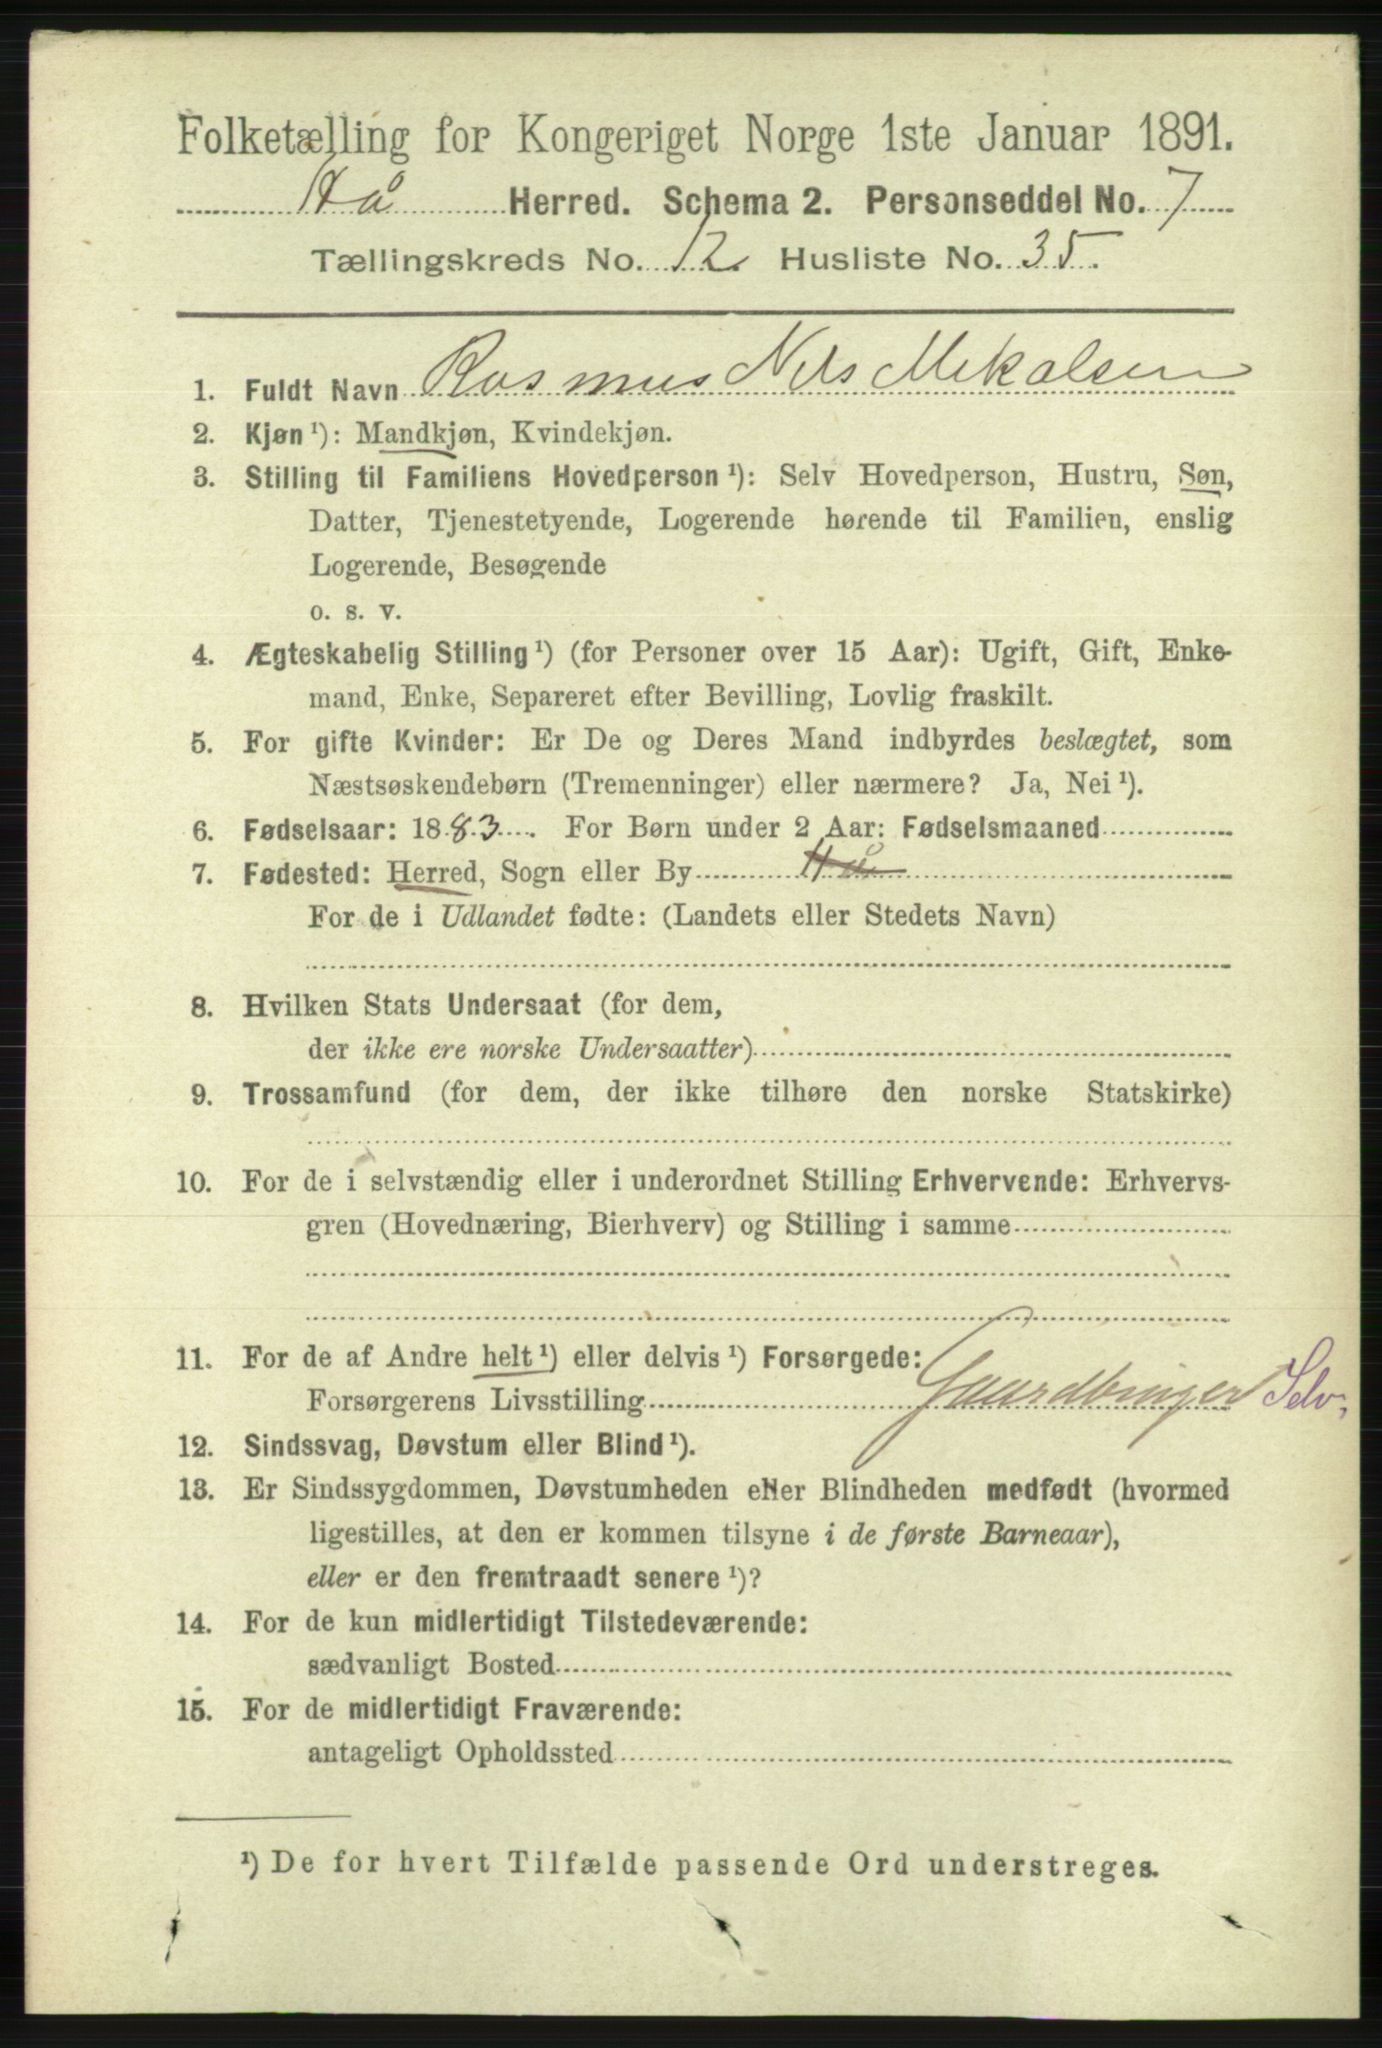 Folketælling for Kongeriget Norge 1ste Januar 1891.
Hå Herred. Schema 2. Personseddel No. 7
Tællingskreds No. 12. Husliste No. 35.
1. Fuldt Navn Rasmus Nils Mikalsen
2. Kjøn ¹): Mandkjøn, Kvindekjøn.
3. Stilling til Familiens Hovedperson ¹): Selv Hovedperson, Hustru, Søn,
Datter, Tjenestetyende, Logerende hørende til Familien, enslig
Logerende, Besøgende
o. s. v.
4. Ægteskabelig Stilling ¹) (for Personer over 15 Aar): Ugift, Gift, Enke-
mand, Enke, Separeret efter Bevilling, Lovlig fraskilt.
5. For gifte Kvinder: Er De og Deres Mand indbyrdes beslægtet, som
Næstsøskendebørn (Tremenninger) eller nærmere? Ja, Nei ¹).
6. Fødselsaar: 1883. For Børn under 2 Aar: Fødselsmaaned
7. Fødested: Herred, Sogn eller By Hå
For de i Udlandet fødte: (Landets eller Stedets Navn)
8. Hvilken Stats Undersaat (for dem,
der ikke ere norske Undersaatter)
9. Trossamfund (for dem, der ikke tilhøre den norske Statskirke)
10. For de i selvstændig eller i underordnet Stilling Erhvervende: Erhvervs-
gren (Hovednæring, Bierhverv) og Stilling i samme
11. For de af Andre helt ¹) eller delvis ¹) Forsørgede:
Forsørgerens Livsstilling Gaardbruger Selv,
12. Sindssvag, Døvstum eller Blind ¹).
13. Er Sindssygdommen, Døvstumheden eller Blindheden medfødt (hvormed
ligestilles, at den er kommen tilsyne i de første Barneaar),
eller er den fremtraadt senere ¹)?
14. For de kun midlertidigt Tilstedeværende:
sædvanligt Bosted
15. For de midlertidigt Fraværende:
antageligt Opholdssted
¹) De for hvert Tilfælde passende Ord understreges.